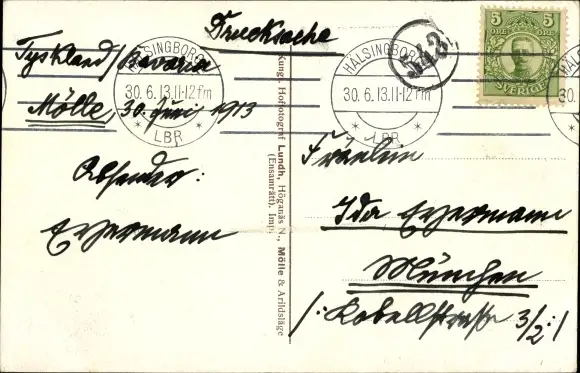 Drucksache
Tyskland/Bavaria
Mölle, 30. Juni 1913
Absender:
HÄLSINGBORG
30.6.13.11-12 fm
LBR
HÄLSINGBORG
30.6.13.11-12 fm
LBR
5 5
ÖRE ÖRE
SVERIGE
Kungl. Hoffotograf Lundh, Höganäs N., Mölle & Arildsläge
(Ensamrätt). Imp.
Fräulein
Ida
München
/: Kobellstraße 3/2 :/